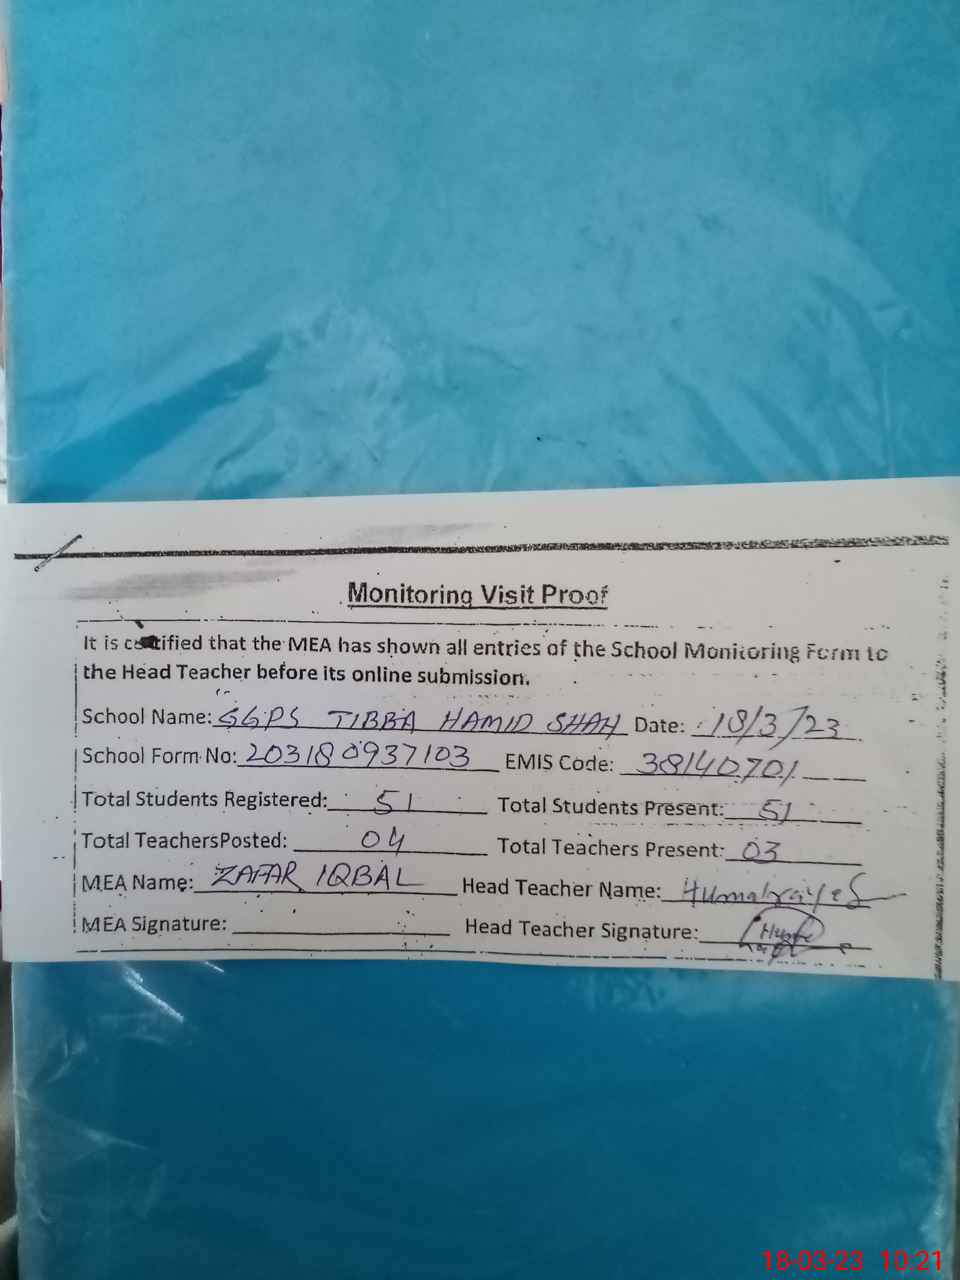 Monitoring Visit Proof
It is certified that the MEA has shown all entries of the School Monitoring Form to
the Head Teacher before its online submission.
School Name: GGPS TIBBA HAMID SHAH Date: 18/3/23
School Form No: 203180937103 EMIS Code: 38140701
Total Students Registered: 51 Total Students Present: 51
Total TeachersPosted: 04 Total Teachers Present: 03
MEA Name: ZAFAR IQBAL Head Teacher Name:
MEA Signature: Head Teacher Signature:
18-03-23 10:21